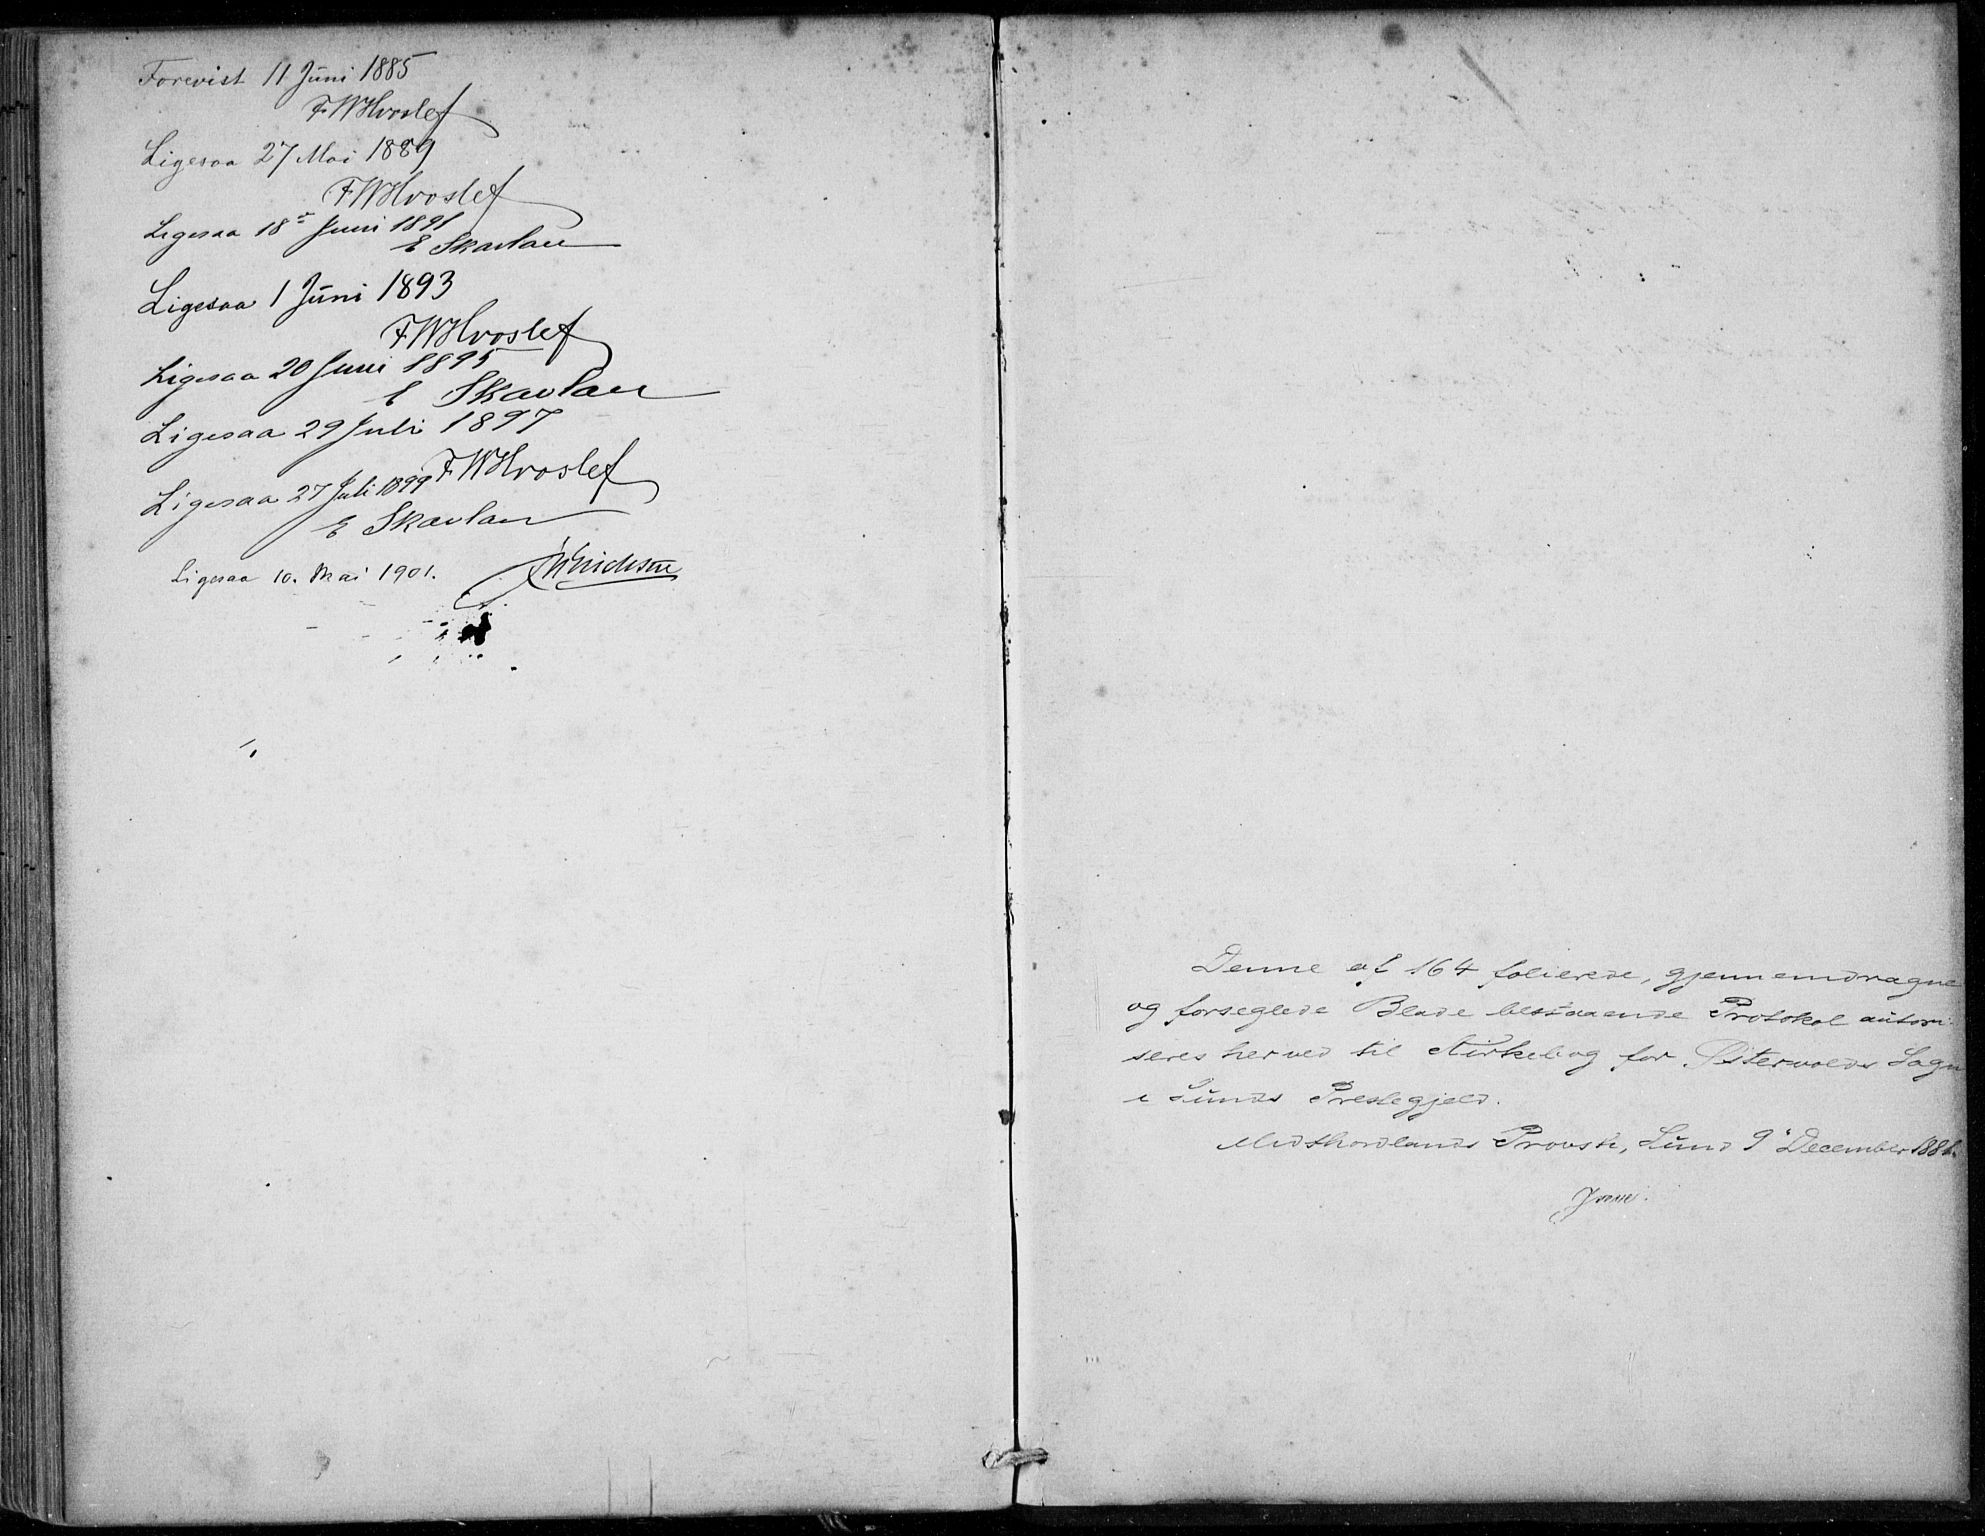 Forevist 11 Juni 1885
FWHvoslef
Ligesaa 27 Mai 1889
FWHvoslef
Ligesaa 18de Juni 1891
E Skavlan
Ligesaa 1 Juni 1893
FWHvoslef
Ligesaa 20 Juni 1895
E Skavlan
Ligesaa 29 Juli 1897
FWHvoslef
Ligesaa 27 Juli 1899
E Skavlan
Ligesaa 10. Mai 1901.
Denne af 164 folierede, gjennemdragne
og forseglede Blade bestaaende Protokol autori-
seres herved til Kirkebog for Østervolds Sogn
i Sunds Prestegjeld.
Midthordlands Provsti, Sund 9 December 1881.